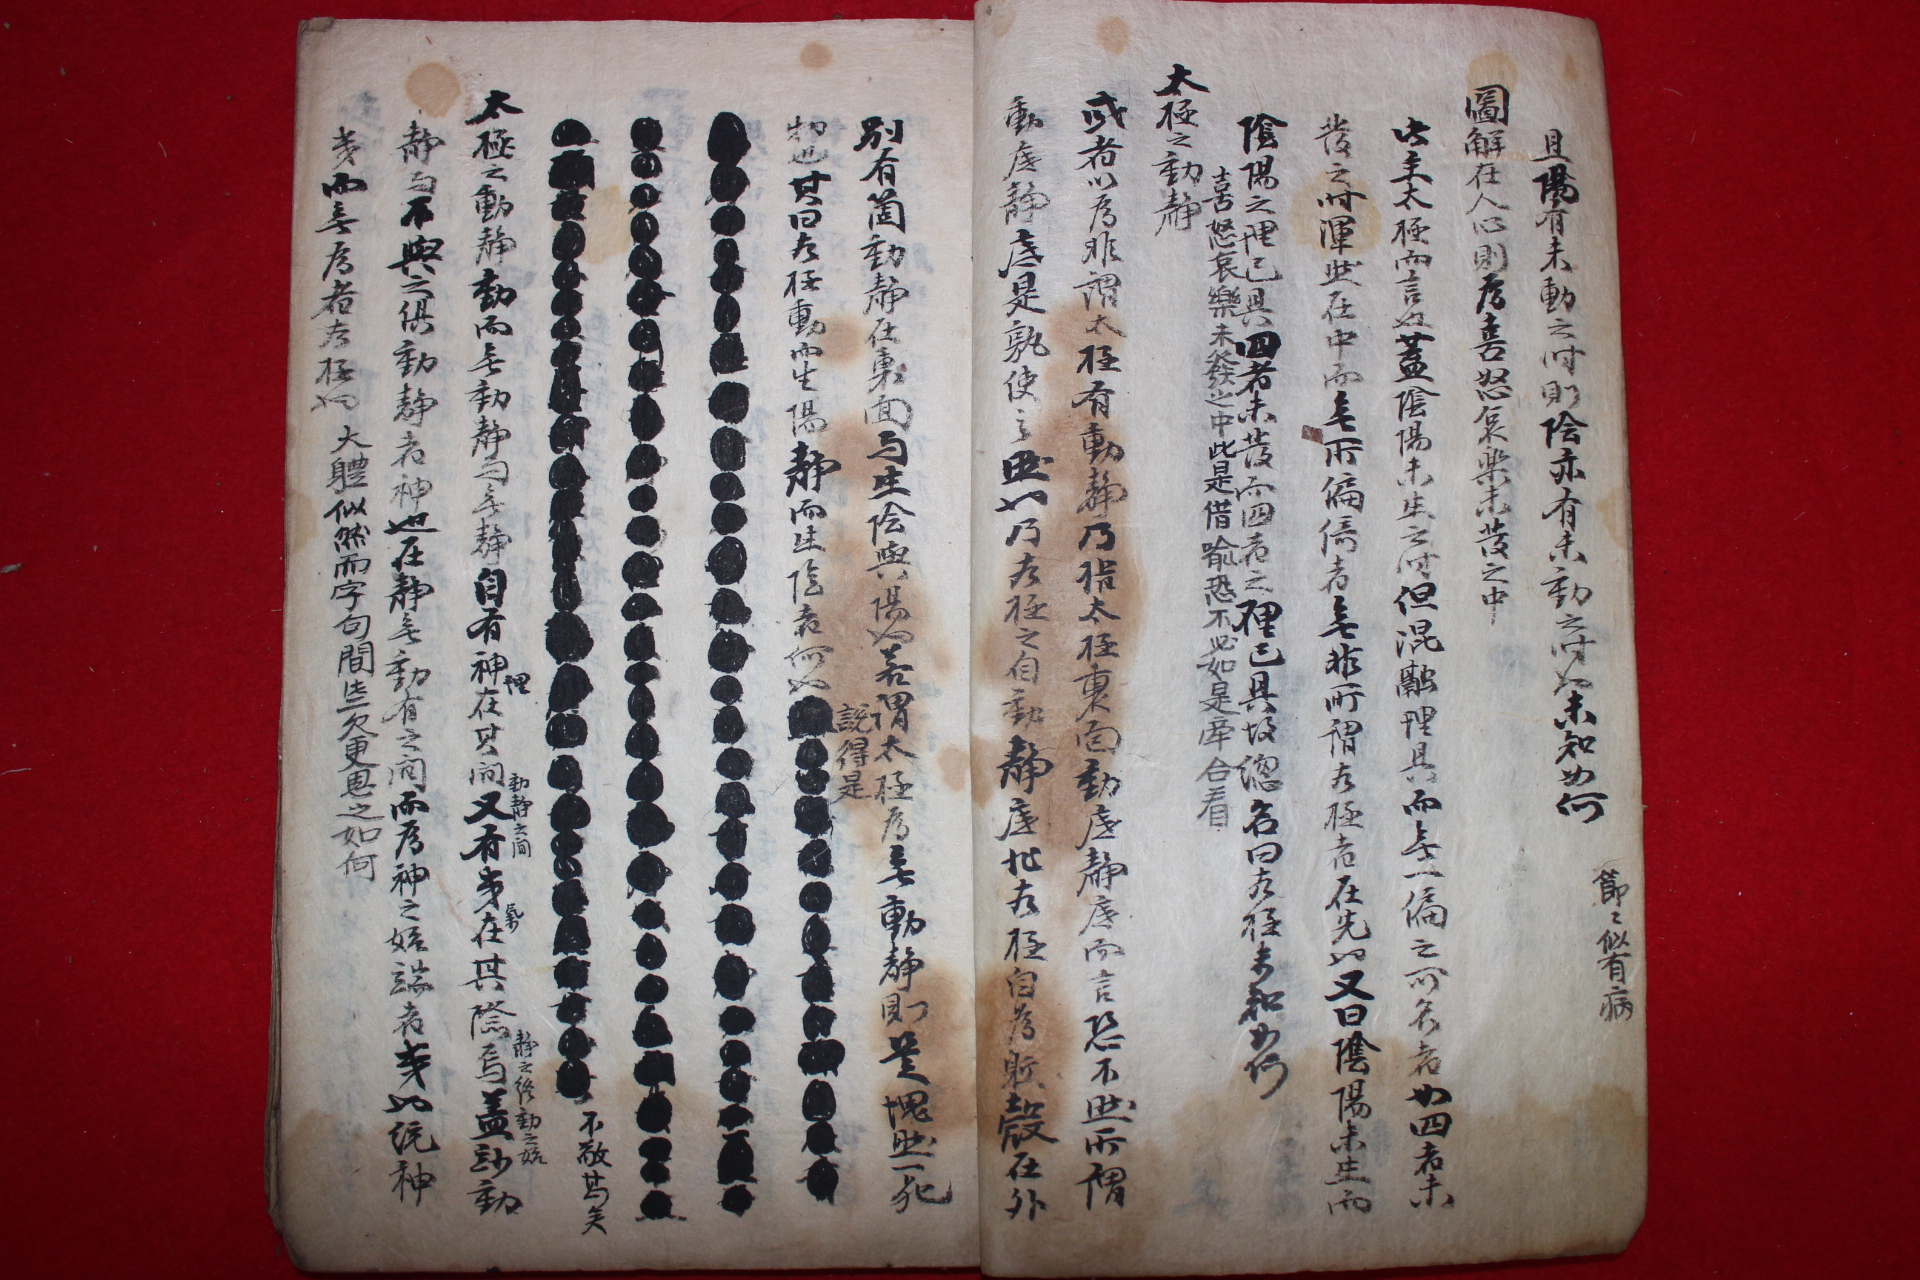 且陽有未動之時則陰亦有未動之時也未知如何
節〻似有病
圖解在人心則爲喜怒哀樂未發之中
此主太極而言也蓋陰陽未生之時但混融理具而無一偏之可名者如四者未
發之時渾然在中而無所偏倚者無非所謂太極者在先也又曰陰陽未生而
陰陽之理已具四者未發而四者之理已具故總名曰太極未知如何
喜怒哀樂未發之中此是借喻恐不必如是牽合看
太極之動靜
或者以爲非謂太極有動靜乃指太極裏面動底靜底而言恐不然所謂
動底靜底是孰使之然也乃太極之自動靜底非太極自爲軀殼在外
別有箇動靜在裏面而生陰與陽也若謂太極爲無動靜則是塊然一死
說得是
物也其曰太極動而生陽靜而生陰者何也
不敢其矣
太極之動靜動而無動靜而無靜自有神在其間又有幾在其際焉蓋動
理
動靜之間
氣
靜之終動之始
靜而不與之俱動靜者神也在靜無動有之間而爲神之始端者幾也統神
幾而無爲者太極也
大體似然而字句間些欠更思之如何